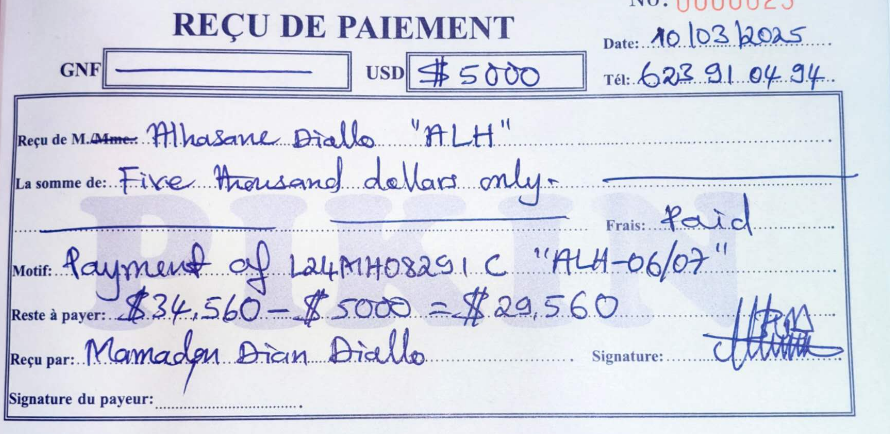 No. 0000025
REÇU DE PAIEMENT
Date: 10/03/2025
GNF USD $ 5000 Tél: 623 91 04 94
Reçu de M./Mme: Alhasane Diallo "ALH"
La somme de: Five thousand dollars only.
Frais: Paid
Motif: Payment of L24MH08291C "ALH-06/07"
Reste à payer: $34,560 - $ 5000 = $29,560
Reçu par: Mamadou Dian Diallo Signature:
Signature du payeur:
PIKIN